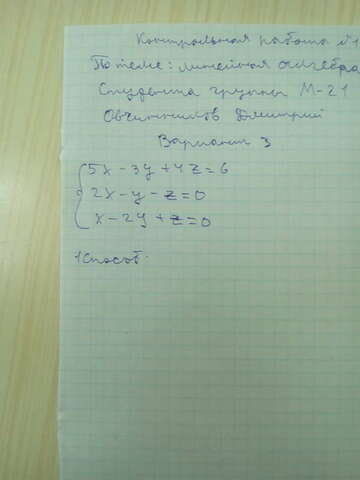 Контрольная работа №1
По теме: линейная алгебра
Студента группы М-21
Овчинников Дмитрий
Вариант 3
5x - 3y + 4z = 6
2x - y - z = 0
x - 2y + z = 0
1 Способ: